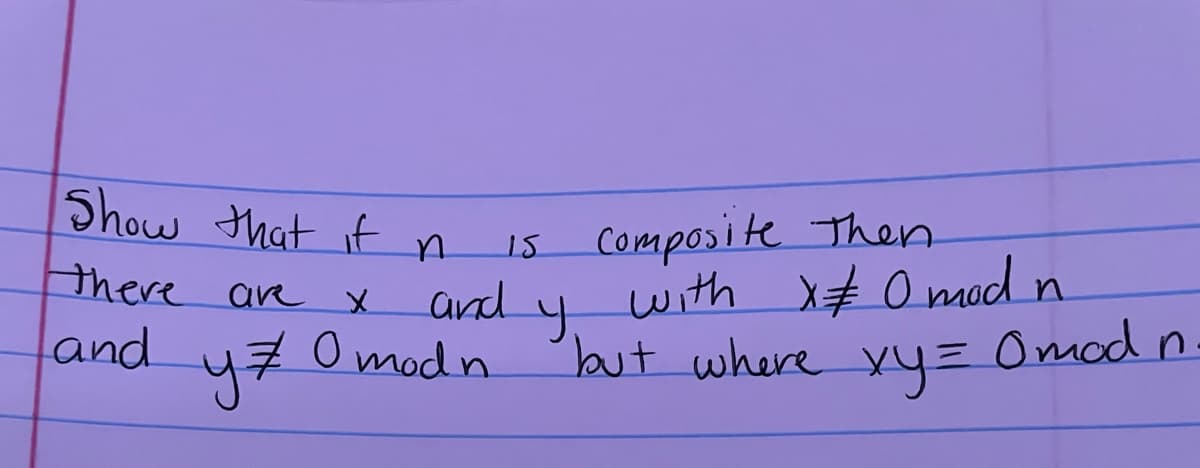 Show that if n is composite then
there are x and y with x ≢ 0 mod n
and y ≢ 0 mod n but where xy ≡ 0 mod n.